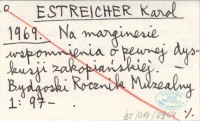 ESTREICHER Karol
1969. Na marginesie
wspomnienia o pewnej dys-
kusji zakopiańskiej. –
Bydgoski Rocznik Muzealny
1: 97–